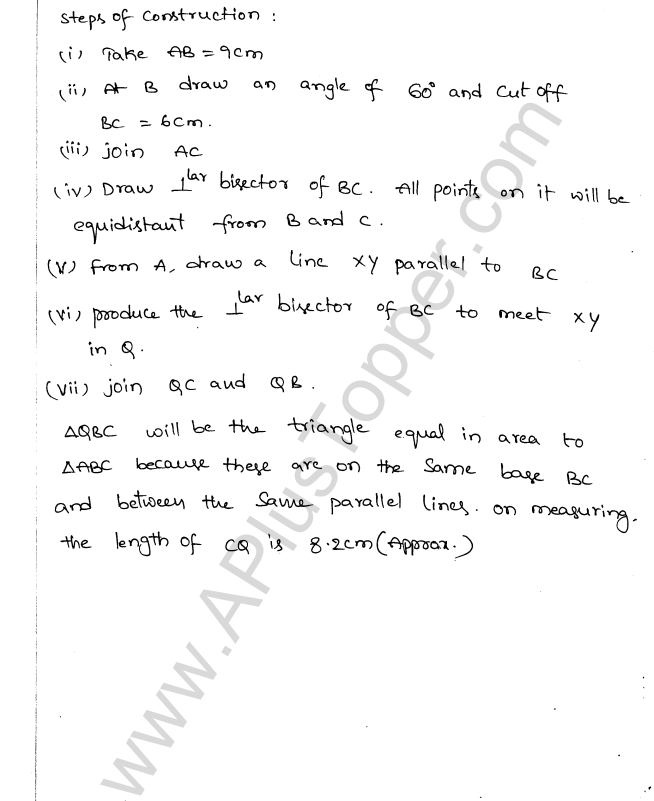 Steps of Construction :
(i) Take AB = 9cm
(ii) At B draw an angle of 60° and Cut off
BC = 6cm.
(iii) join AC
(iv) Draw ⊥lar bisector of BC. All points on it will be
equidistant from B and C.
(v) From A, draw a line XY parallel to BC
(vi) produce the ⊥lar bisector of BC to meet XY
in Q.
(vii) join QC and QB.
△QBC will be the triangle equal in area to
△ABC because these are on the Same base BC
and between the Same parallel lines. on measuring.
the length of CQ is 8.2cm (Approx.)
www.APlusTopper.com